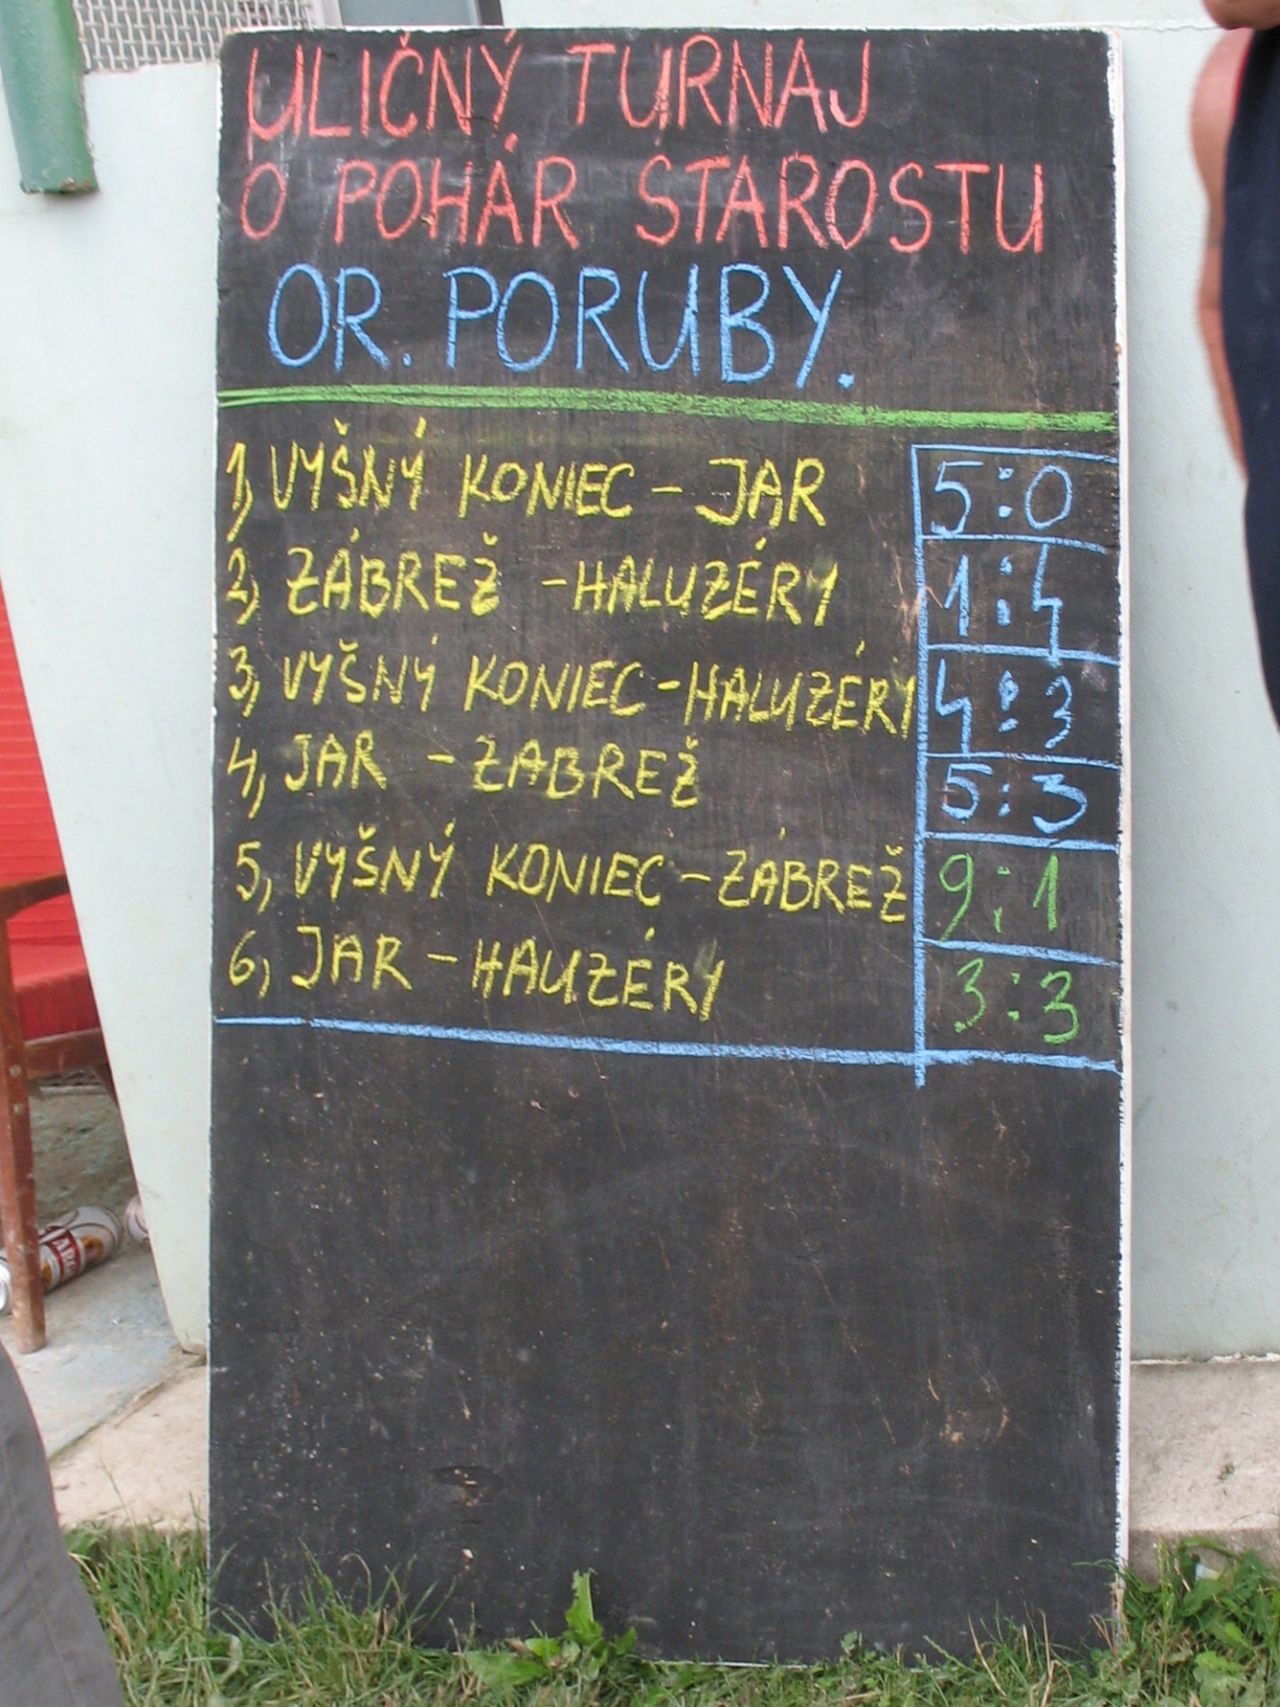 ULIČNÝ TURNAJ
O POHÁR STAROSTU
OR. PORUBY.
1, VYŠNÝ KONIEC - JAR 5:0
2, ZÁBREŽ - HALUZÉRY 1:4
3, VYŠNÝ KONIEC - HALUZÉRY 4:3
4, JAR - ZABREŽ 5:3
5, VYŠNÝ KONIEC - ZÁBREŽ 9:1
6, JAR - HAUZÉRY 3:3